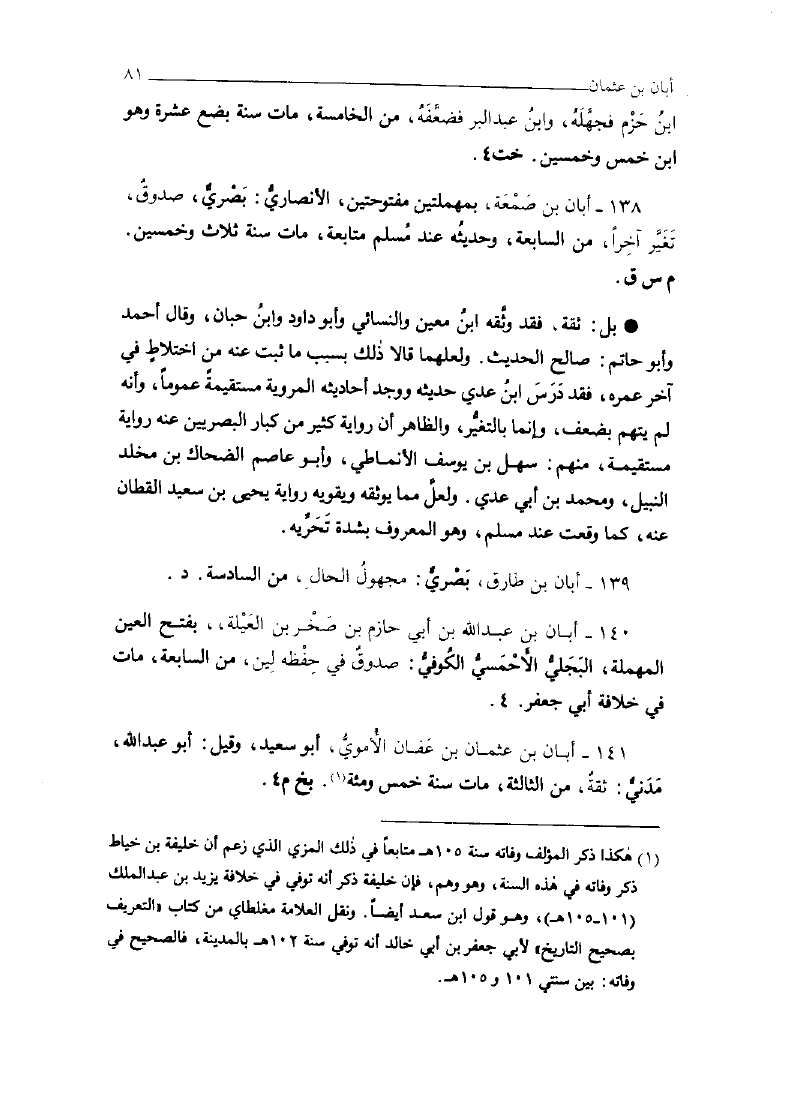 أبان بن عثمان ٨١
ابنُ حَزْم فجهَّلَهُ، وابنُ عبدالبر فضعَّفَهُ، من الخامسة، مات سنة بضع عشرة وهو
ابن خمس وخمسين. خت٤.
١٣٨ ـ أبان بن صَمْعَة، بمهملتين مفتوحتين، الأنصاريُّ: بَصْريٌّ، صدوقٌ،
تَغَيَّر آخِراً، من السابعة، وحديثُه عند مُسلم متابعة، مات سنة ثلاث وخمسين.
م س ق.
● بل: ثقة، فقد وثَّقه ابنُ معين والنسائي وأبو داود وابنُ حبان، وقال أحمد
وأبو حاتم: صالح الحديث. ولعلهما قالا ذٰلك بسبب ما ثبت عنه من اختلاطٍ في
آخر عمره، فقد دَرَسَ ابنُ عدي حديثه ووجد أحاديثه المروية مستقيمةً عموماً، وأنه
لم يتهم بضعف، وإنما بالتغيُّر، والظاهر أن رواية كثير من كبار البصريين عنه رواية
مستقيمة، منهم: سهل بن يوسف الأنماطي، وأبو عاصم الضحاك بن مخلد
النبيل، ومحمد بن أبي عدي. ولعلَّ مما يوثقه ويقويه رواية يحيى بن سعيد القطان
عنه، كما وقعت عند مسلم، وهو المعروف بشدة تَحَرِّيه.
١٣٩ ـ أبان بن طارق، بَصْريٌّ: مجهولُ الحال، من السادسة. د.
١٤٠ ـ أبان بن عبدالله بن أبي حازم بن صَخْر بن العَيْلة،، بفتح العين
المهملة، البَجَليُّ الأَحْمَسيُّ الكُوفيُّ: صدوقٌ في حِفْظه لِين، من السابعة، مات
في خلافة أبي جعفر. ٤.
١٤١ ـ أبان بن عثمان بن عَفان الأُمويُّ، أبو سعيد، وقيل: أبو عبدالله،
مَدَنيٌّ: ثقةٌ، من الثالثة، مات سنة خمس ومئة(١). بخ م٤.
(١) هٰكذا ذكر المؤلف وفاته سنة ١٠٥هـ متابعاً في ذٰلك المزي الذي زعم أن خليفة بن خياط
ذكر وفاته في هٰذه السنة، وهو وهم، فإن خليفة ذكر أنه توفي في خلافة يزيد بن عبدالملك
(١٠١-١٠٥هـ)، وهو قول ابن سعد أيضاً. ونقل العلامة مغلطاي من كتاب «التعريف
بصحيح التاريخ» لأبي جعفر بن أبي خالد أنه توفي سنة ١٠٢هـ بالمدينة، فالصحيح في
وفاته: بين سنتي ١٠١ و١٠٥هـ.